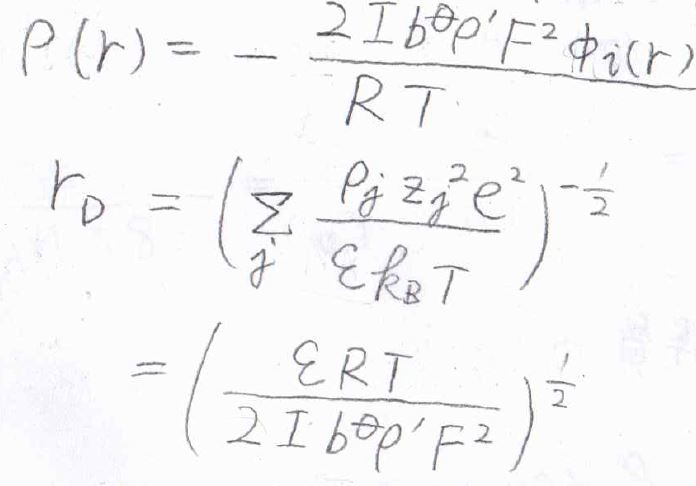 ρ(r) = - 2Ib^θρ'F²φi(r) / RT
r_D = (Σ_j ρ_j z_j² e² / εk_B T)^(-1/2)
= (εRT / 2Ib^θρ'F²)^(1/2)